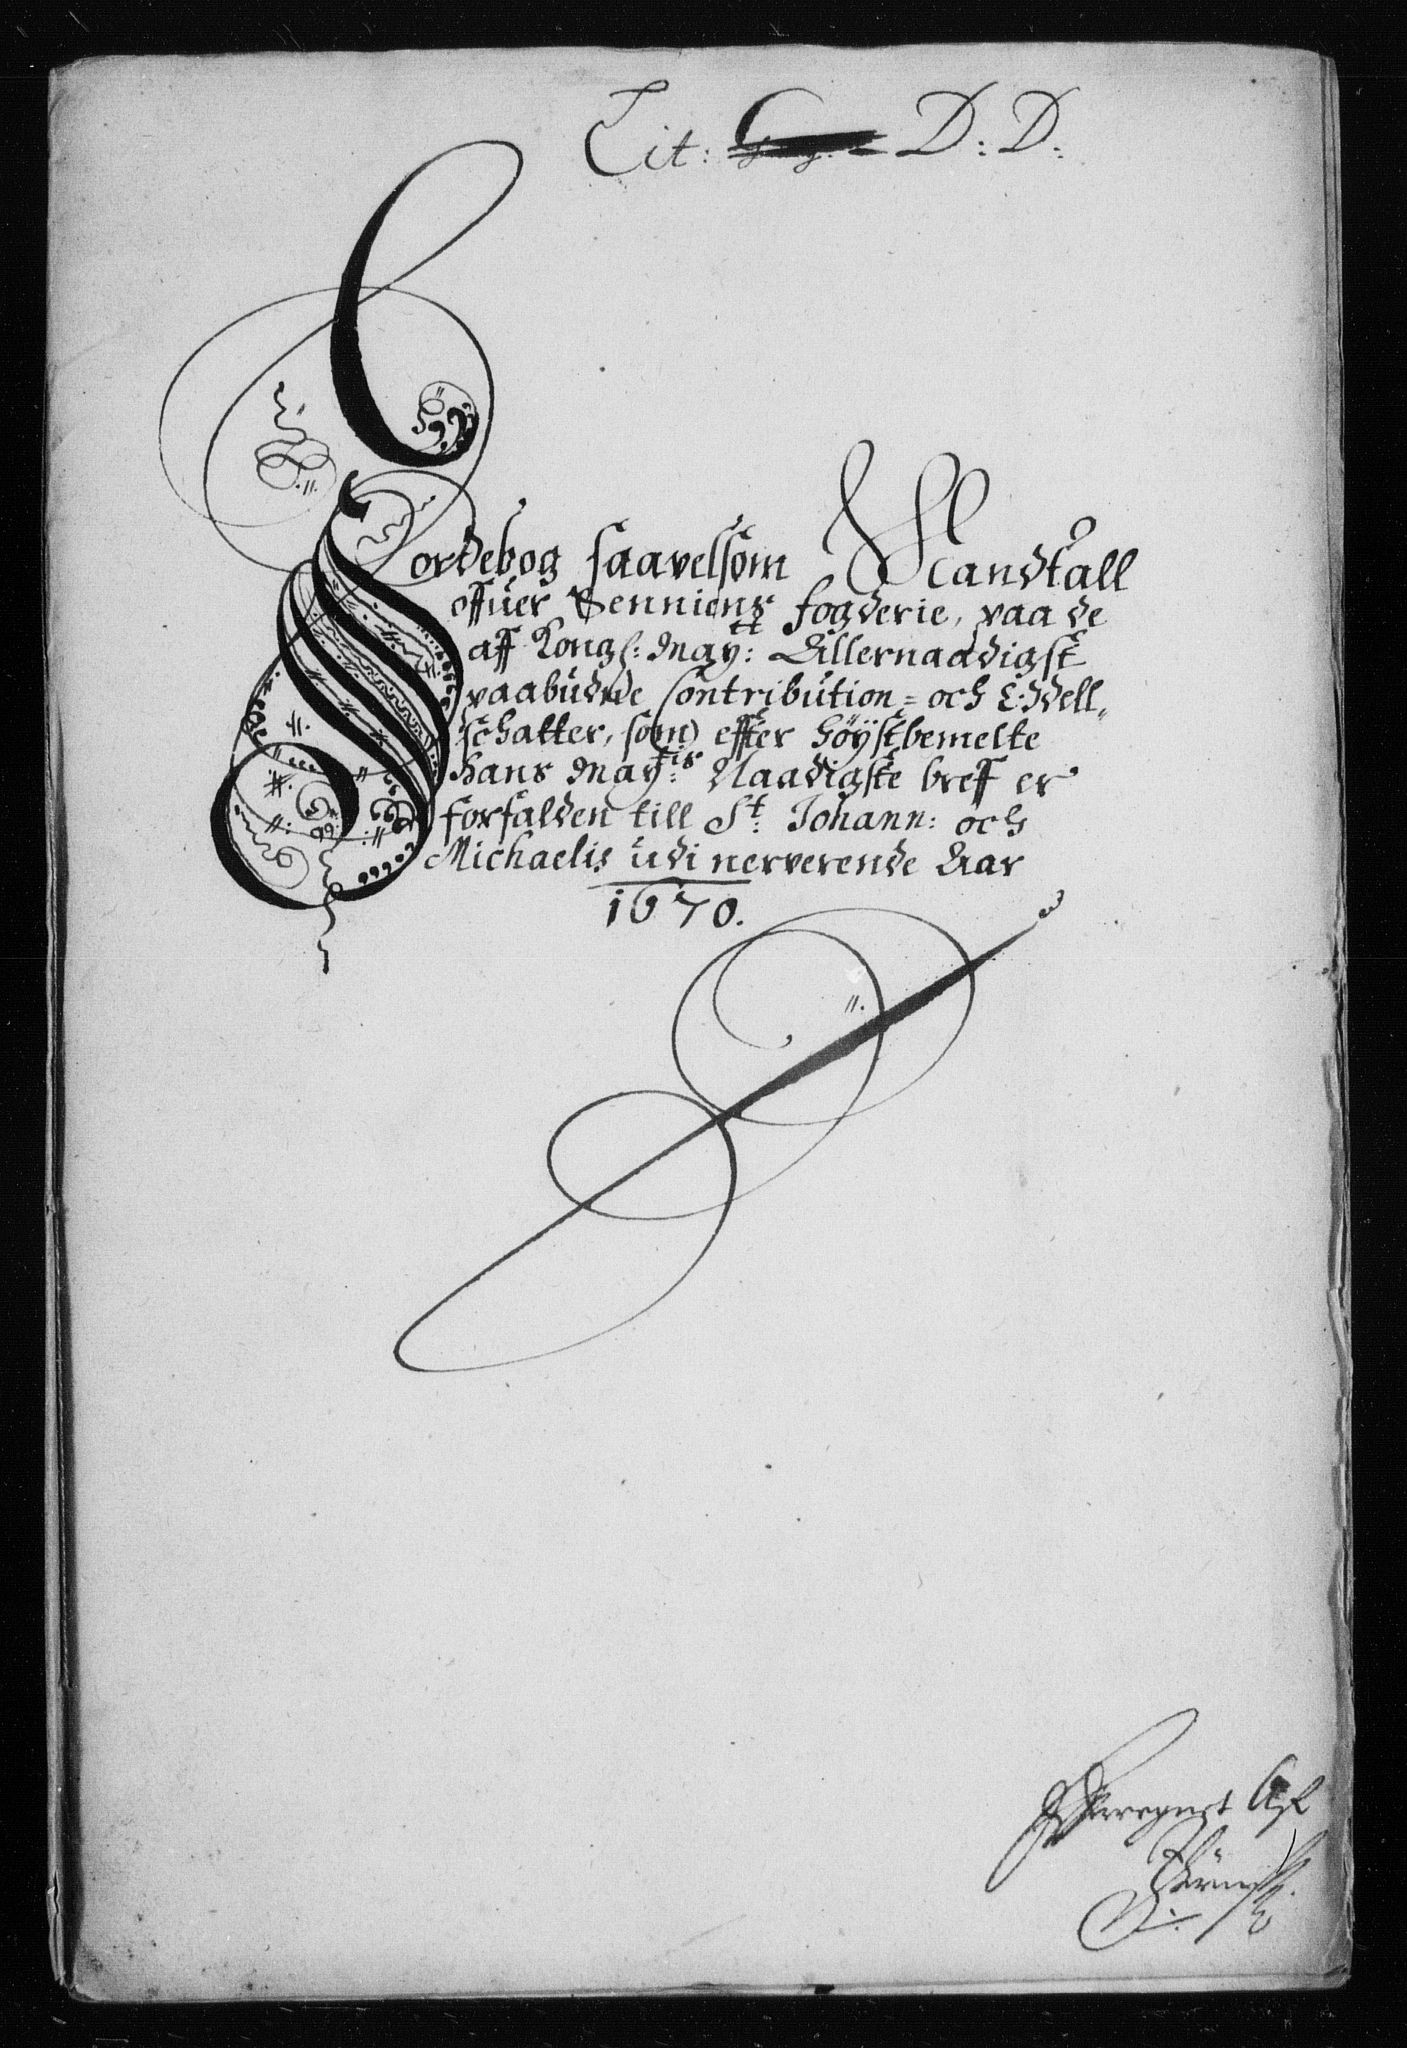 Lit: D: D:
Jordebog saavelsom Mandtall
offuer Senniens fogderie, paa de
aff Kongl: May:tt Allernaadigst
paabudne Contribution- och
schatter, som effter höÿstbemelte
hans May:tis Naadigste breff er
forfalden till St: Johann: och
Michaelis udi nerverende Aar
1670.